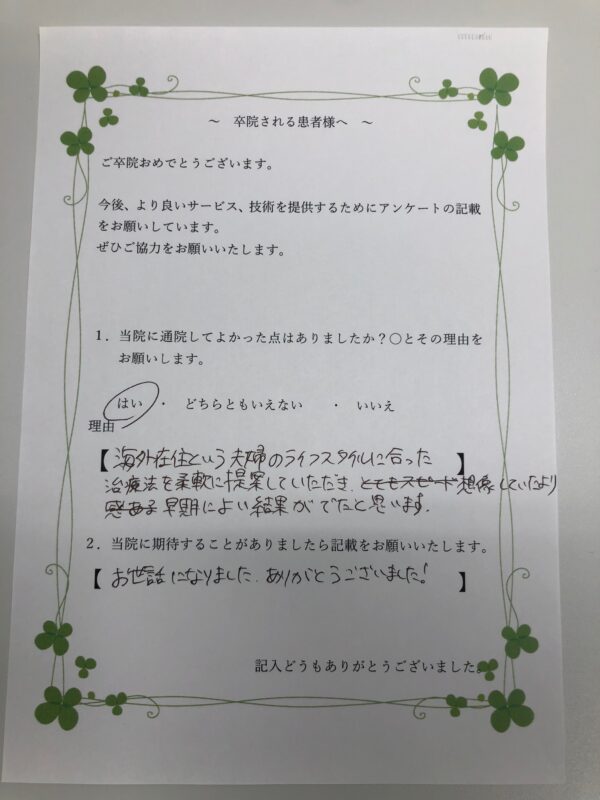 ～　卒院される患者様へ　～
ご卒院おめでとうございます。
今後、より良いサービス、技術を提供するためにアンケートの記載
をお願いしています。
ぜひご協力をお願いいたします。
1．当院に通院してよかった点はありましたか？○とその理由を
お願いします。
はい　・　どちらともいえない　　・　いいえ
理由
【海外在住という夫婦のライフスタイルに合った　】
治療法を柔軟に提案していただき、とてもスピード想像していたより
感ある早期によい結果がでたと思います。
2．当院に期待することがありましたら記載をお願いいたします。
【お世話になりました。ありがとうございました！　】
記入どうもありがとうございました。